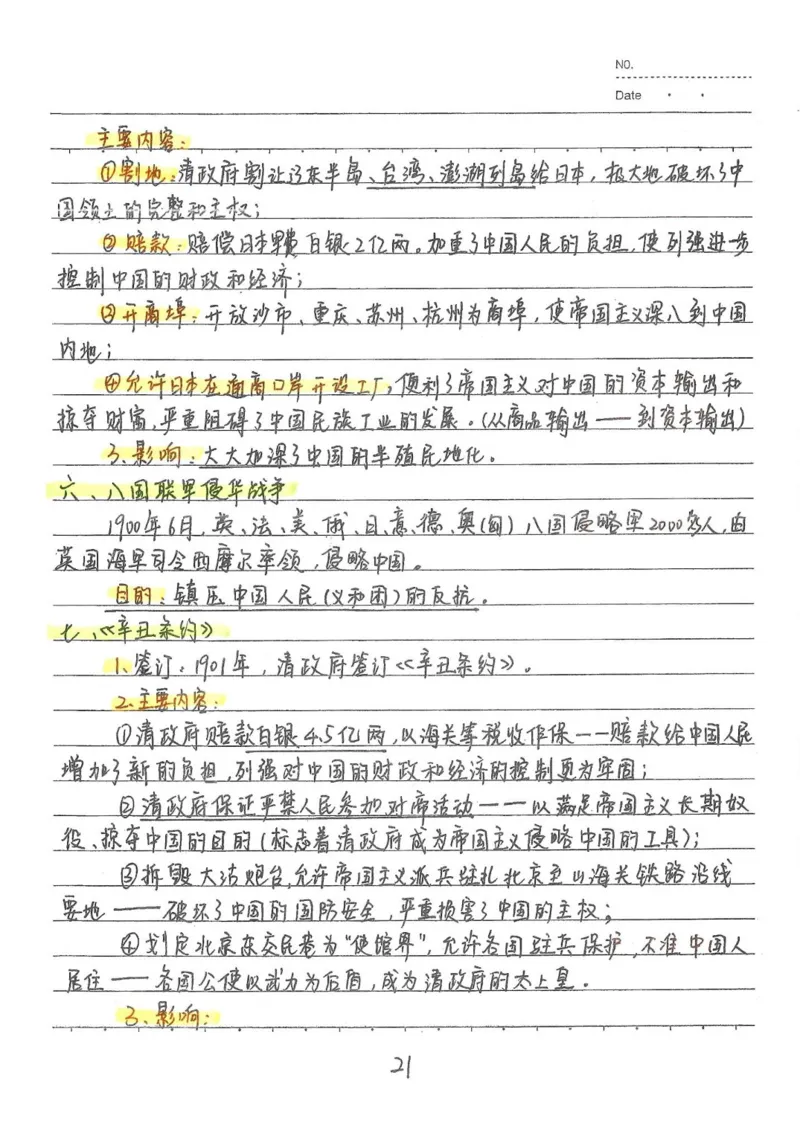 NO.
Date
主要内容:
①割地:清政府割让辽东半岛、台湾、澎湖列岛给日本,极大地破坏了中
国领土的完整和主权;
②赔款:赔偿日本军费白银2亿两。加重了中国人民的负担,使列强进一步
控制中国的财政和经济;
③开商埠:开放沙市、重庆、苏州、杭州为商埠,使帝国主义深入到中国
内地;
④允许日本在通商口岸开设工厂,便利了帝国主义对中国的资本输出和
掠夺财富,严重阻碍了中国民族工业的发展。(从商品输出——到资本输出)
3、影响:大大加深了中国的半殖民地化。
六、八国联军侵华战争
1900年6月,英、法、美、俄、日、意、德、奥(匈)八国侵略军2000多人,由
英国海军司令西摩尔率领,侵略中国。
目的:镇压中国人民(义和团)的反抗。
七、《辛丑条约》
1、签订:1901年,清政府签订《辛丑条约》。
2、主要内容:
①清政府赔款白银4.5亿两,以海关等税收作保——赔款给中国人民
增加了新的负担,列强对中国的财政和经济的控制更为牢固;
②清政府保证严禁人民参加对帝活动——以满足帝国主义长期奴
役、掠夺中国的目的(标志着清政府成为帝国主义侵略中国的工具);
③拆毁大沽炮台,允许帝国主义派兵驻扎北京至山海关铁路沿线
要地——破坏了中国的国防安全,严重损害了中国的主权;
④划定北京东交民巷为“使馆界”,允许各国驻兵保护,不准中国人
居住——各国公使以武力为后盾,成为清政府的太上皇。
3、影响:
21